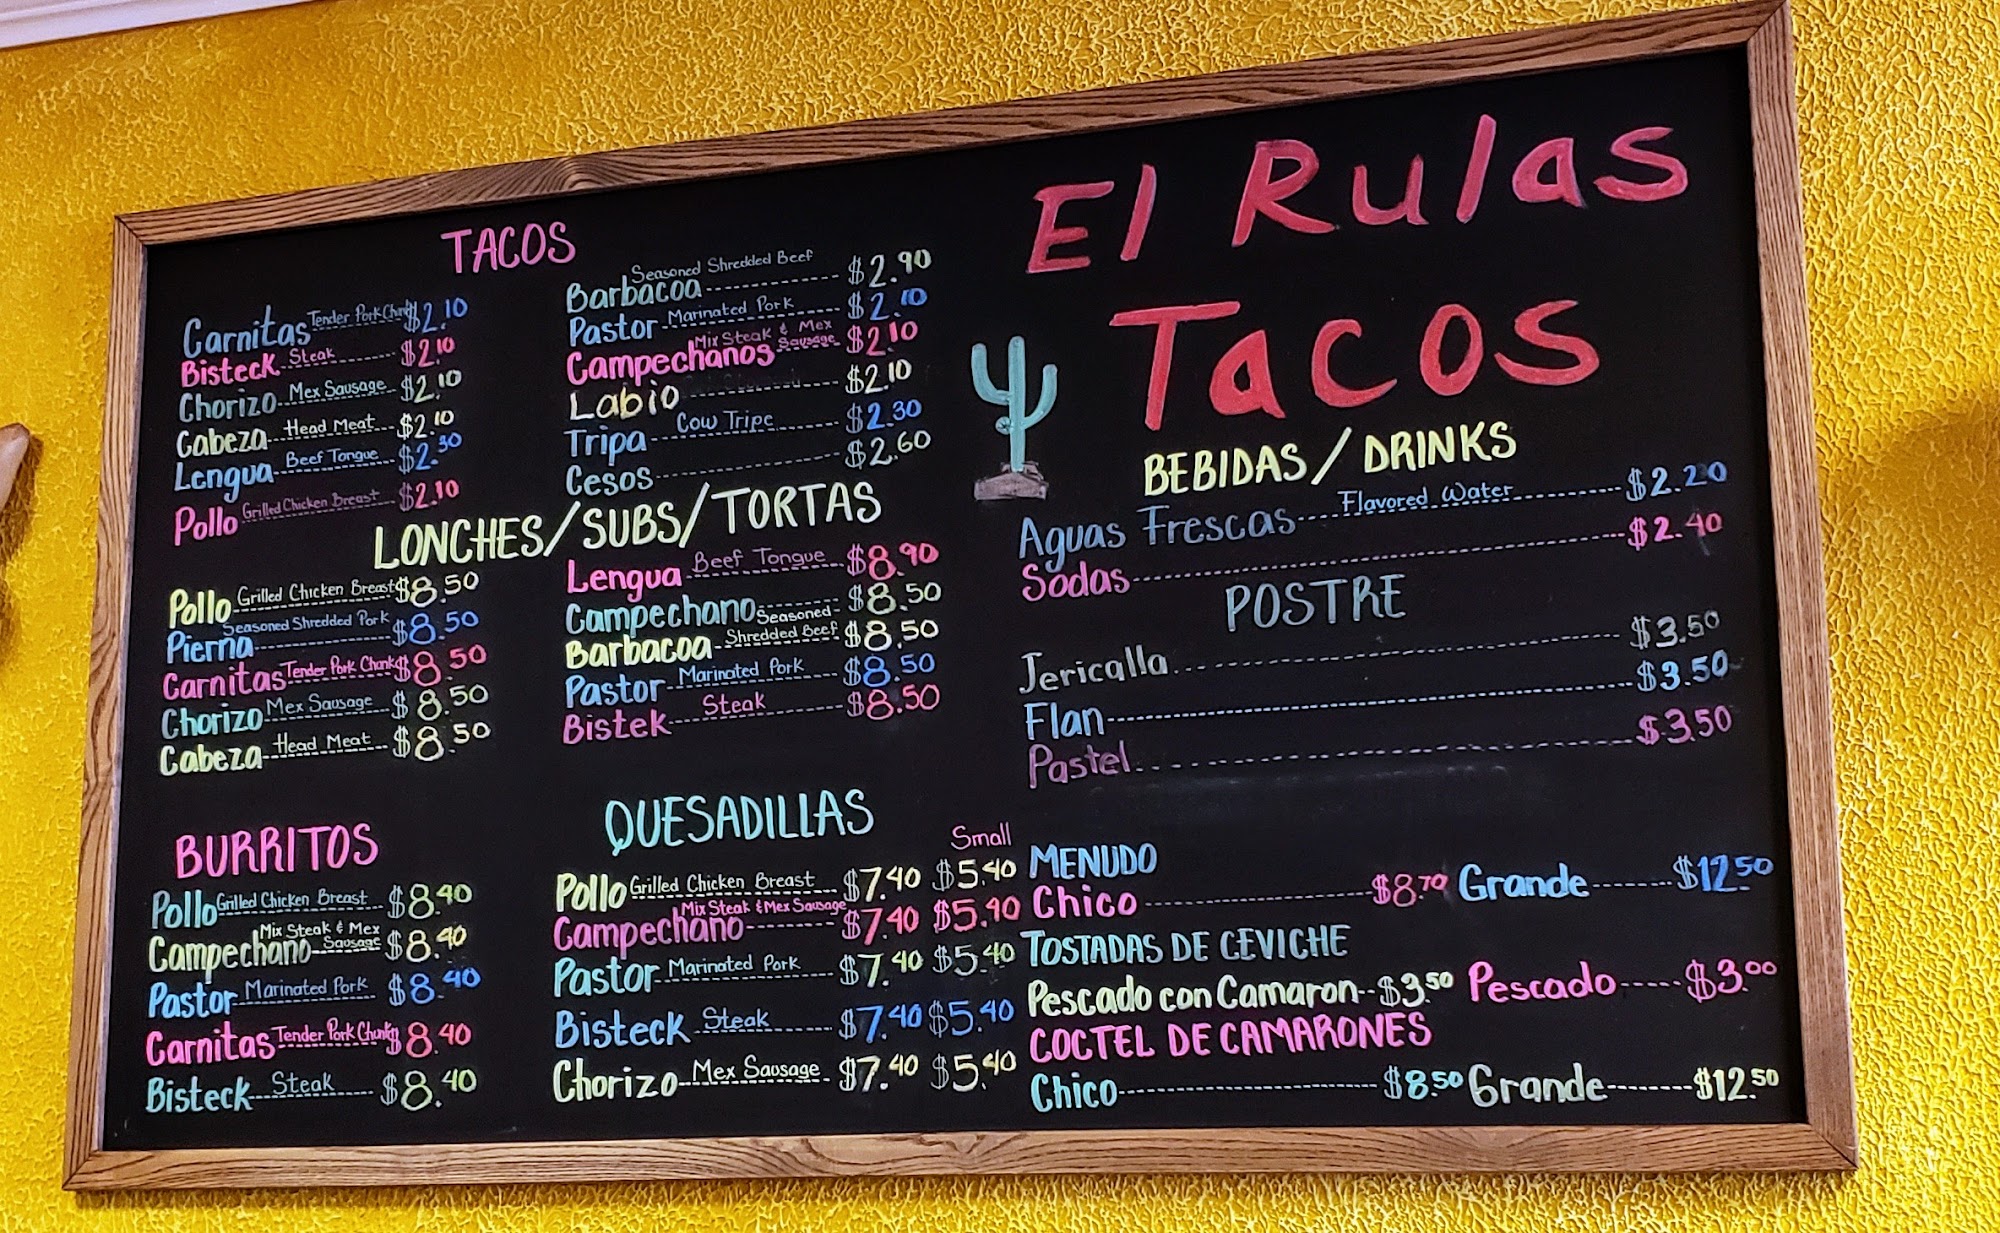 El Rulas
Tacos
TACOS
Carnitas Tender Pork Chunk $2.10
Bisteck Steak $2.10
Chorizo Mex Sausage $2.10
Cabeza Head Meat $2.10
Lengua Beef Tongue $2.30
Pollo Grilled Chicken Breast $2.10
Barbacoa Seasoned Shredded Beef $2.90
Pastor Marinated Pork $2.10
Campechanos Mix Steak & Mex Sausage $2.10
Labio $2.10
Tripa Cow Tripe $2.30
Cesos $2.60
LONCHES/SUBS/TORTAS
Pollo Grilled Chicken Breast $8.50
Pierna Seasoned Shredded Pork $8.50
Carnitas Tender Pork Chunk $8.50
Chorizo Mex Sausage $8.50
Cabeza Head Meat $8.50
Lengua Beef Tongue $8.90
Campechano $8.50
Barbacoa Seasoned Shredded Beef $8.50
Pastor Marinated Pork $8.50
Bistek Steak $8.50
BURRITOS
Pollo Grilled Chicken Breast $8.40
Campechano Mix Steak & Mex Sausage $8.40
Pastor Marinated Pork $8.40
Carnitas Tender Pork Chunk $8.40
Bisteck Steak $8.40
QUESADILLAS
Small
Pollo Grilled Chicken Breast $7.40 $5.40
Campechano Mix Steak & Mex Sausage $7.40 $5.40
Pastor Marinated Pork $7.40 $5.40
Bisteck Steak $7.40 $5.40
Chorizo Mex Sausage $7.40 $5.40
BEBIDAS/DRINKS
Aguas Frescas Flavored Water $2.20
Sodas $2.40
POSTRE
Jericalla $3.50
Flan $3.50
Pastel $3.50
MENUDO
Chico $8.70 Grande $12.50
TOSTADAS DE CEVICHE
Pescado con Camaron $3.50 Pescado $3.00
COCTEL DE CAMARONES
Chico $8.50 Grande $12.50